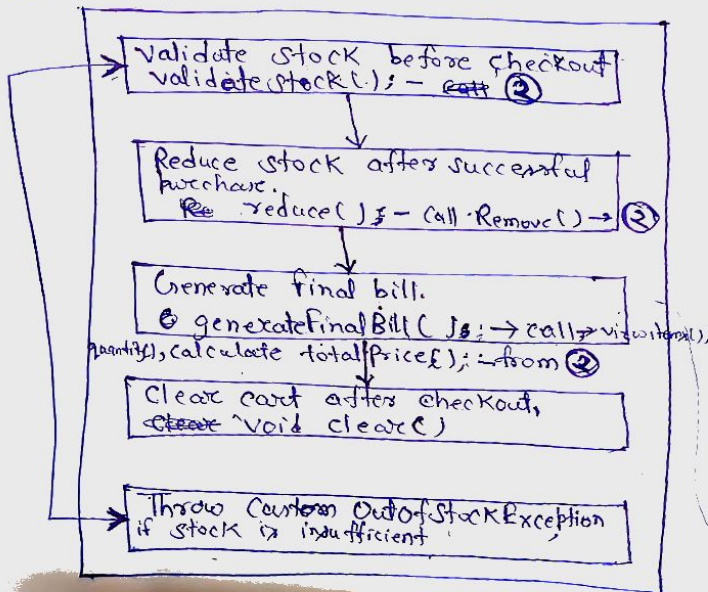 Validate stock before checkout
validatestock(.); - call ②
Reduce stock after successful
purchase.
Re reduce(); - call Remove() → ②
Generate final bill.
generateFinalBill(); → call → viewitems(),
quantity(), calculate totalPrice(); - from ②
Clear cart after checkout,
Clear void clear()
Throw Custom OutOfStockException
if stock is insufficient